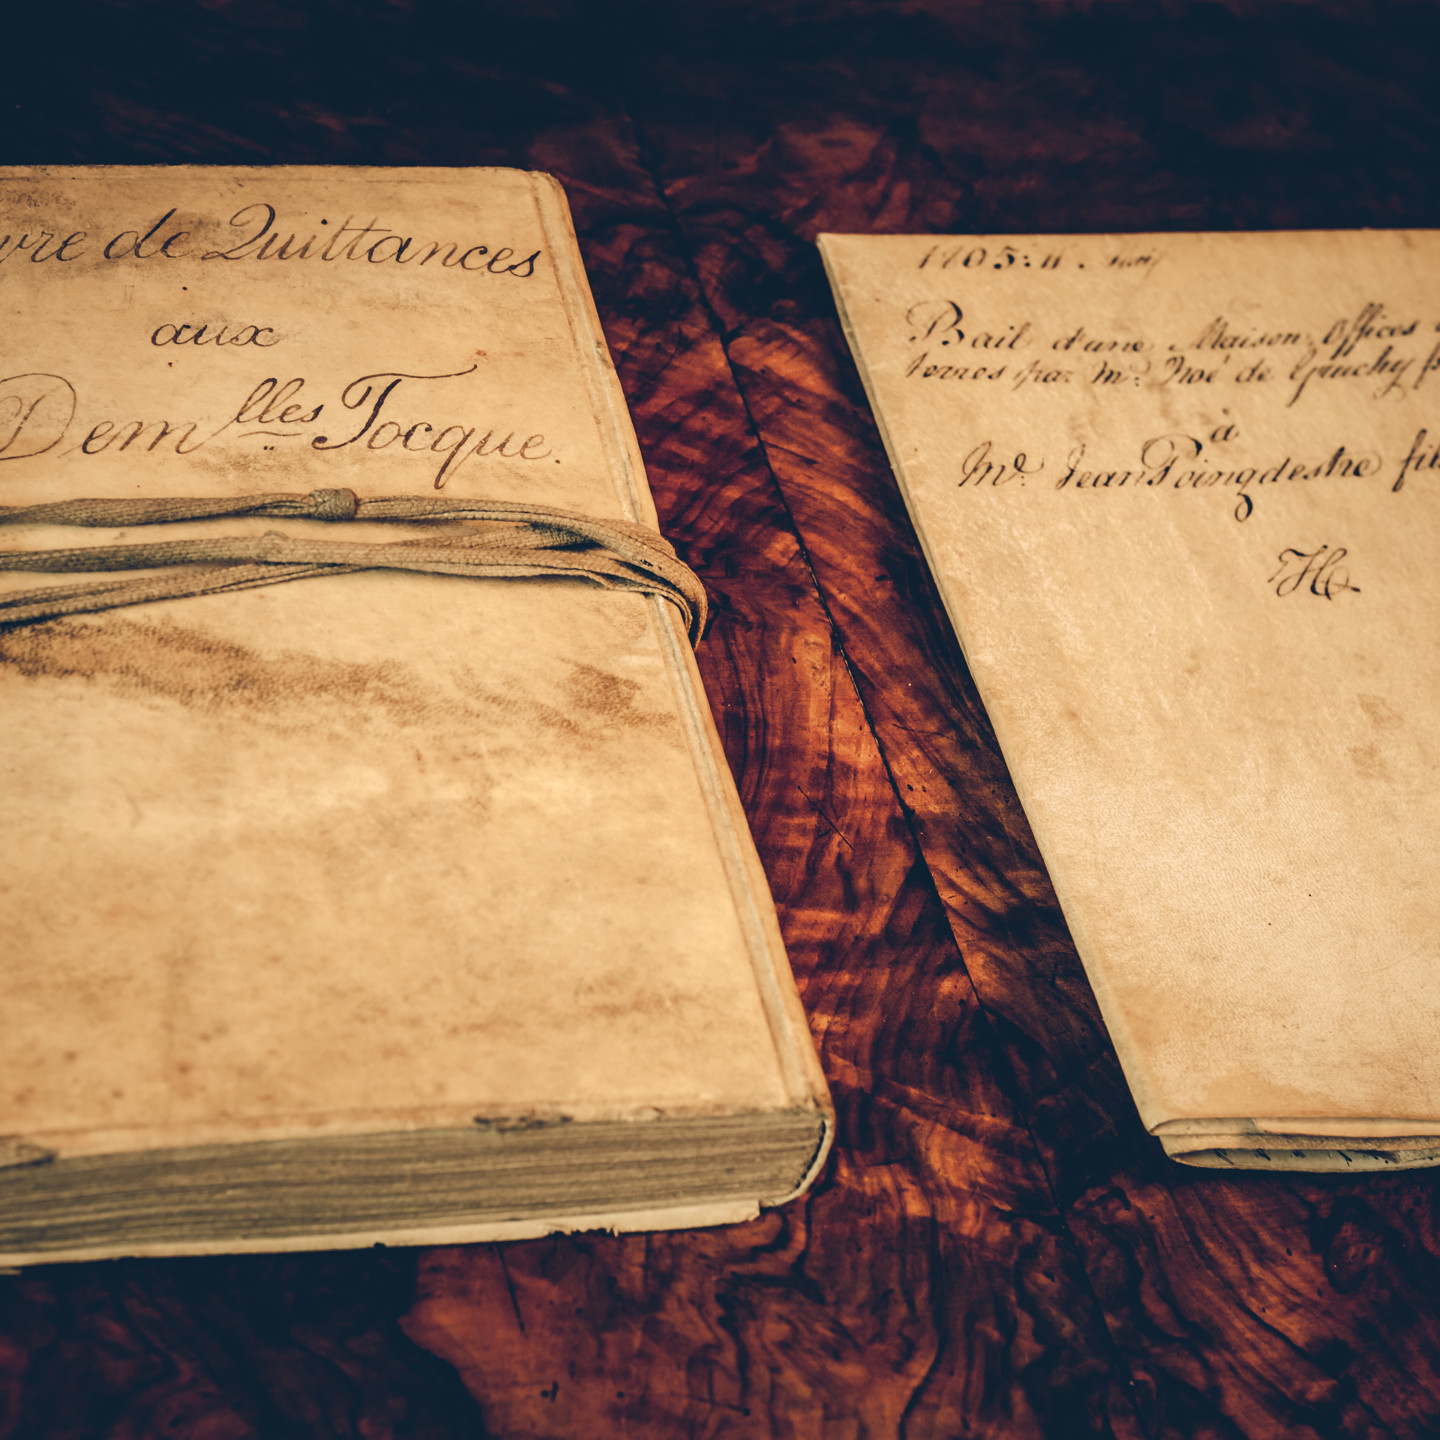 vre de Quittances
aux
Demlles Tocque.
1705: 11.
Bail d'une Maison, Offices
terres par Mr. Noé de Gruchy
à
Mr. Jean Poingdestre fils
H